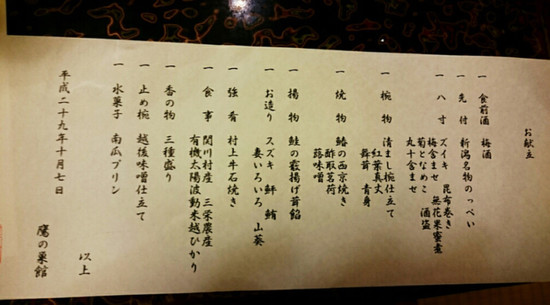 お献立
一 食前酒 梅酒
一 先付 新潟名物のっぺい
一 八寸 ズイキ 昆布巻き
梅含ませ 無花果蜜煮
菊となめこ 酒盗
丸十含ませ
一 椀物 清まし椀仕立て
紅葉真丈
舞茸 青身
一 焼物 鰆の西京焼き
酢取茗荷
蕗味噌
一 揚物 鮭の霰揚げ茸餡
一 お造り スズキ 鮃 鮪
妻いろいろ 山葵
一 強肴 村上牛石焼き
一 食事 関川村産 三栄農産
有機太陽波動米越ひかり
一 香の物 三種盛り
一 止め椀 越後味噌仕立て
一 水菓子 南瓜プリン
以上
平成二十九年十月七日
鷹の巣館